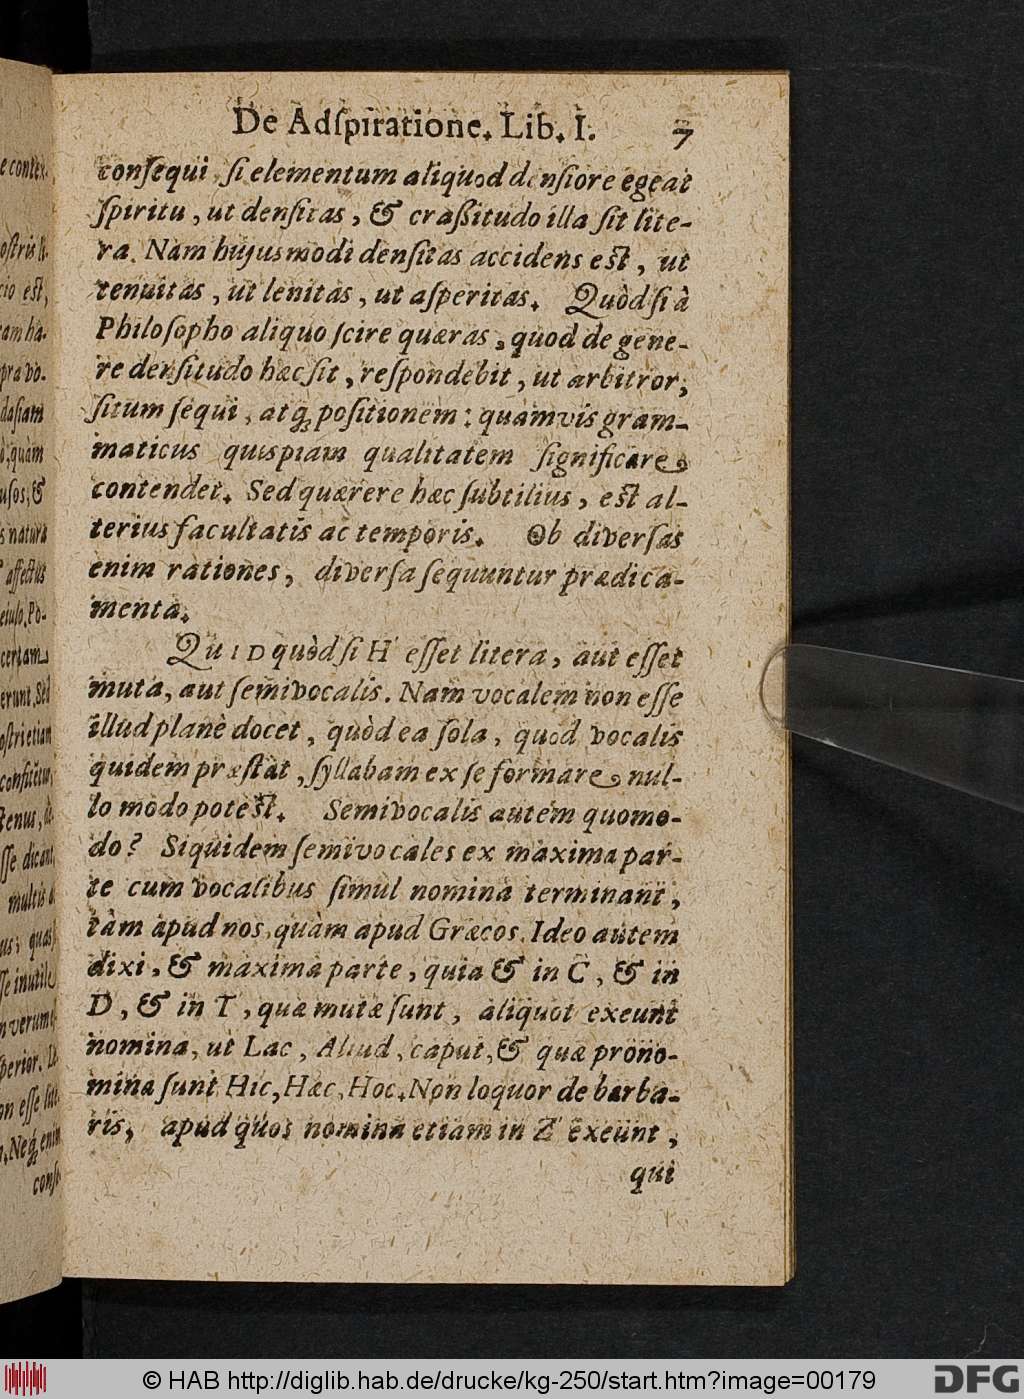 De Adſpiratione. Lib. I. 7
conſequi, ſi elementum aliquod denſiore egeat
ſpiritu, ut denſitas, & craßitudo illa ſit lite-
ra. Nam hujusmodi denſitas accidens est, ut
tenuitas, ut lenitas, ut aſperitas. Quòd ſi à
Philoſopho aliquo ſcire quæras, quod de gene-
re denſitudo hæc ſit, reſpondebit, ut arbitror,
ſitum ſequi, atq́; poſitionem: quamvis gram-
maticus quispiam qualitatem ſignificare
contendet. Sed quærere hæc ſubtilius, est al-
terius facultatis ac temporis. Ob diverſas
enim rationes, diverſa ſequuntur prædica-
menta.
QUID quòd ſi H eſſet litera, aut eſſet
muta, aut ſemivocalis. Nam vocalem non eſſe
illud planè docet, quòd ea ſola, quod vocalis
quidem præſtat, ſyllabam ex ſe formare nul-
lo modo potest. Semivocalis autem quomo-
do? Siquidem ſemivocales ex maxima par-
te cum vocalibus ſimul nomina terminant,
tàm apud nos, quàm apud Græcos. Ideo autem
dixi, & maxima parte, quia & in C, & in
D, & in T, quæ mutæ ſunt, aliquot exeunt
nomina, ut Lac, Aliud, caput, & quæ prono-
mina ſunt Hic, Hæc, Hoc. Non loquor de barba-
ris, apud quos nomina etiam in Z exeunt,
qui
e contex-
oſtris li-
cio est,
am ha-
pra vo-
daſiam
quàm
uſos, &
s natura
affectus
eiuſo. Po-
certam
erunt. Sed
oſtri etiam
tenus,
ſſe dicant
multis
quaſ
ſſe inutile
n verum
ſperior.
on eſſe
Neq́; enim
conſe-
© HAB http://diglib.hab.de/drucke/kg-250/start.htm?image=00179
DFG